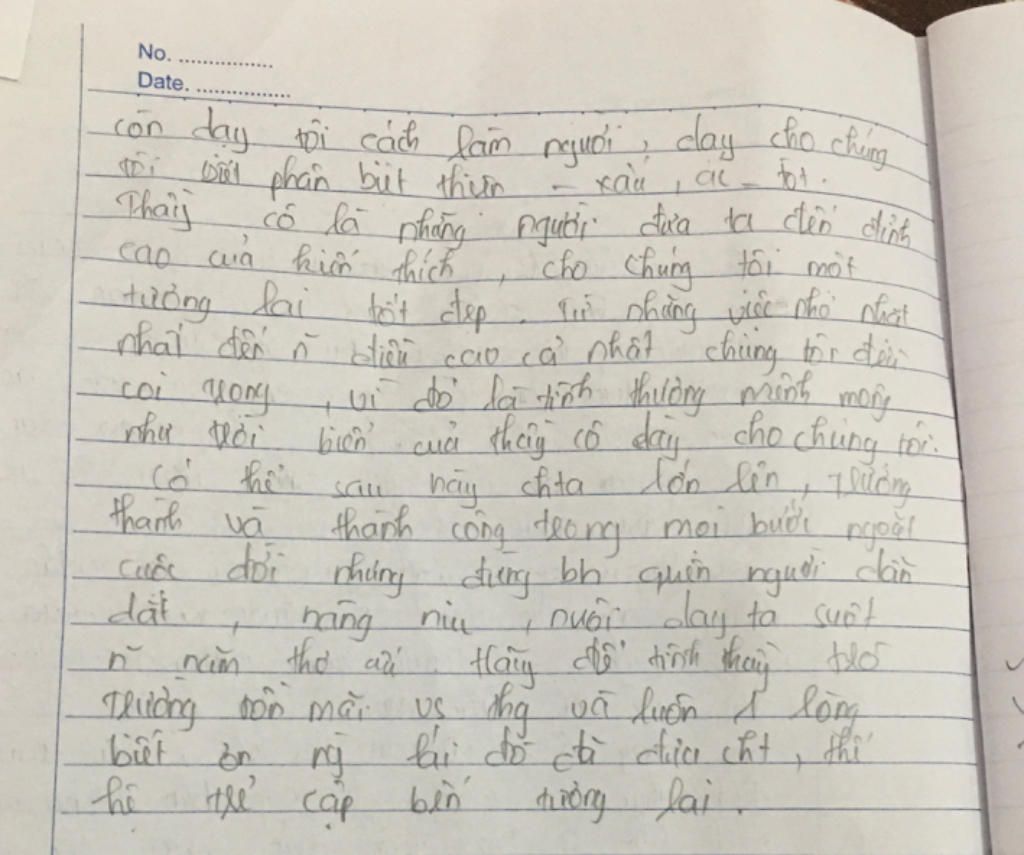 No. ................
Date. ................
còn dạy tôi cách làm người, dạy cho chúng
tôi biết phân biệt thiện - xấu, ác - tốt.
Thầy cô là những người đưa ta đến đỉnh
cao của kiến thích, cho chúng tôi một
tương lai tốt đẹp. Từ những việc nhỏ nhặt
nhất đến n~ điều cao cả nhất chúng tôi đều
coi trọng, vì đó là tình thương mênh mông
như trời biển của thầy cô dạy cho chúng tôi.
Có thể sau này chta lớn lên, trưởng
thành và thành công trong mọi bước ngoặt
cuộc đời nhưng đừng bh quên người dẫn
dắt, nâng niu, nuôi dạy ta suốt
n~ năm thơ ấu. Hãy để tình thầy trò
trường tồn mãi vs thg và luôn 1 lòng
biết ơn ng lái đò đã đưa cht, thế
hệ trẻ cập bến tương lai.